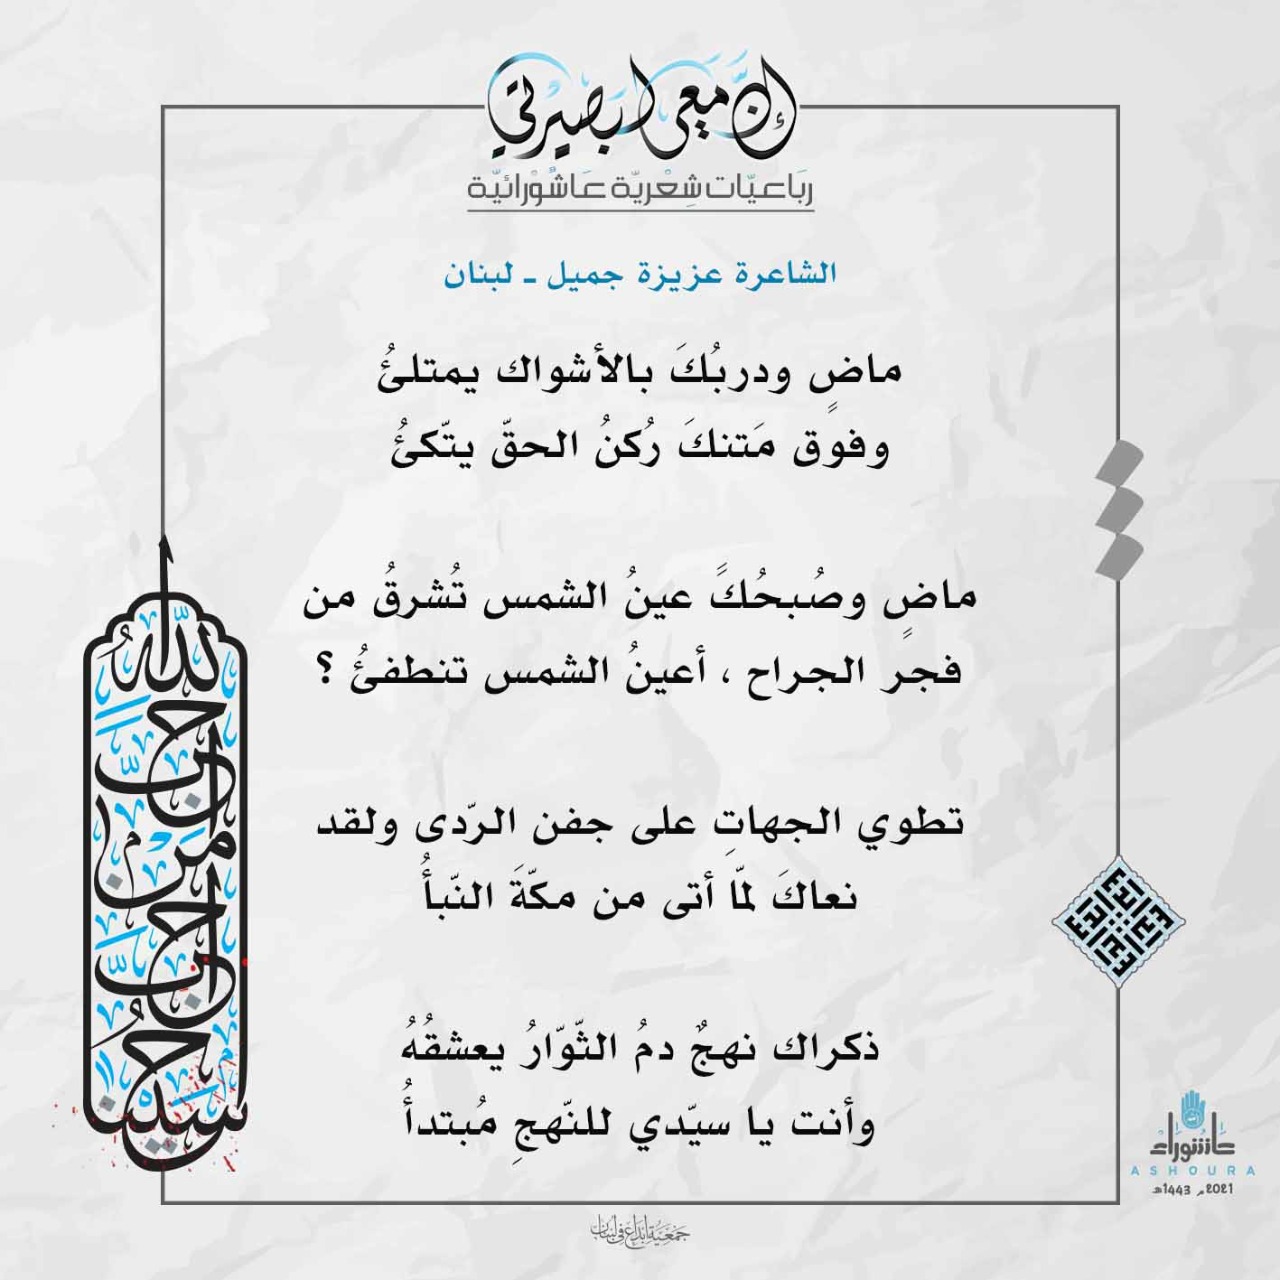 إنّ معي لبصيرتي
رباعيّات شِعْريّة عاشُوْرائيّة
الشاعرة عزيزة جميل - لبنان
ماضٍ ودربُكَ بالأشواك يمتلئُ
وفوق مَتنكَ رُكنُ الحقّ يتّكئُ
ماضٍ وصُبحُكَ عينُ الشمس تُشرقُ من
فجر الجراح ، أعينُ الشمس تنطفئُ ؟
تطوي الجهاتِ على جفن الرّدى ولقد
نعاكَ لمّا أتى من مكّةَ النّبأُ
ذكراك نهجٌ دمُ الثّوّارُ يعشقُهُ
وأنت يا سيّدي للنّهجِ مُبتدأُ
أحبّ الله من أحبّ حسينا
عاشوراء
ASHOURA
2021م 1443هـ
جمعية إبداع في لبنان